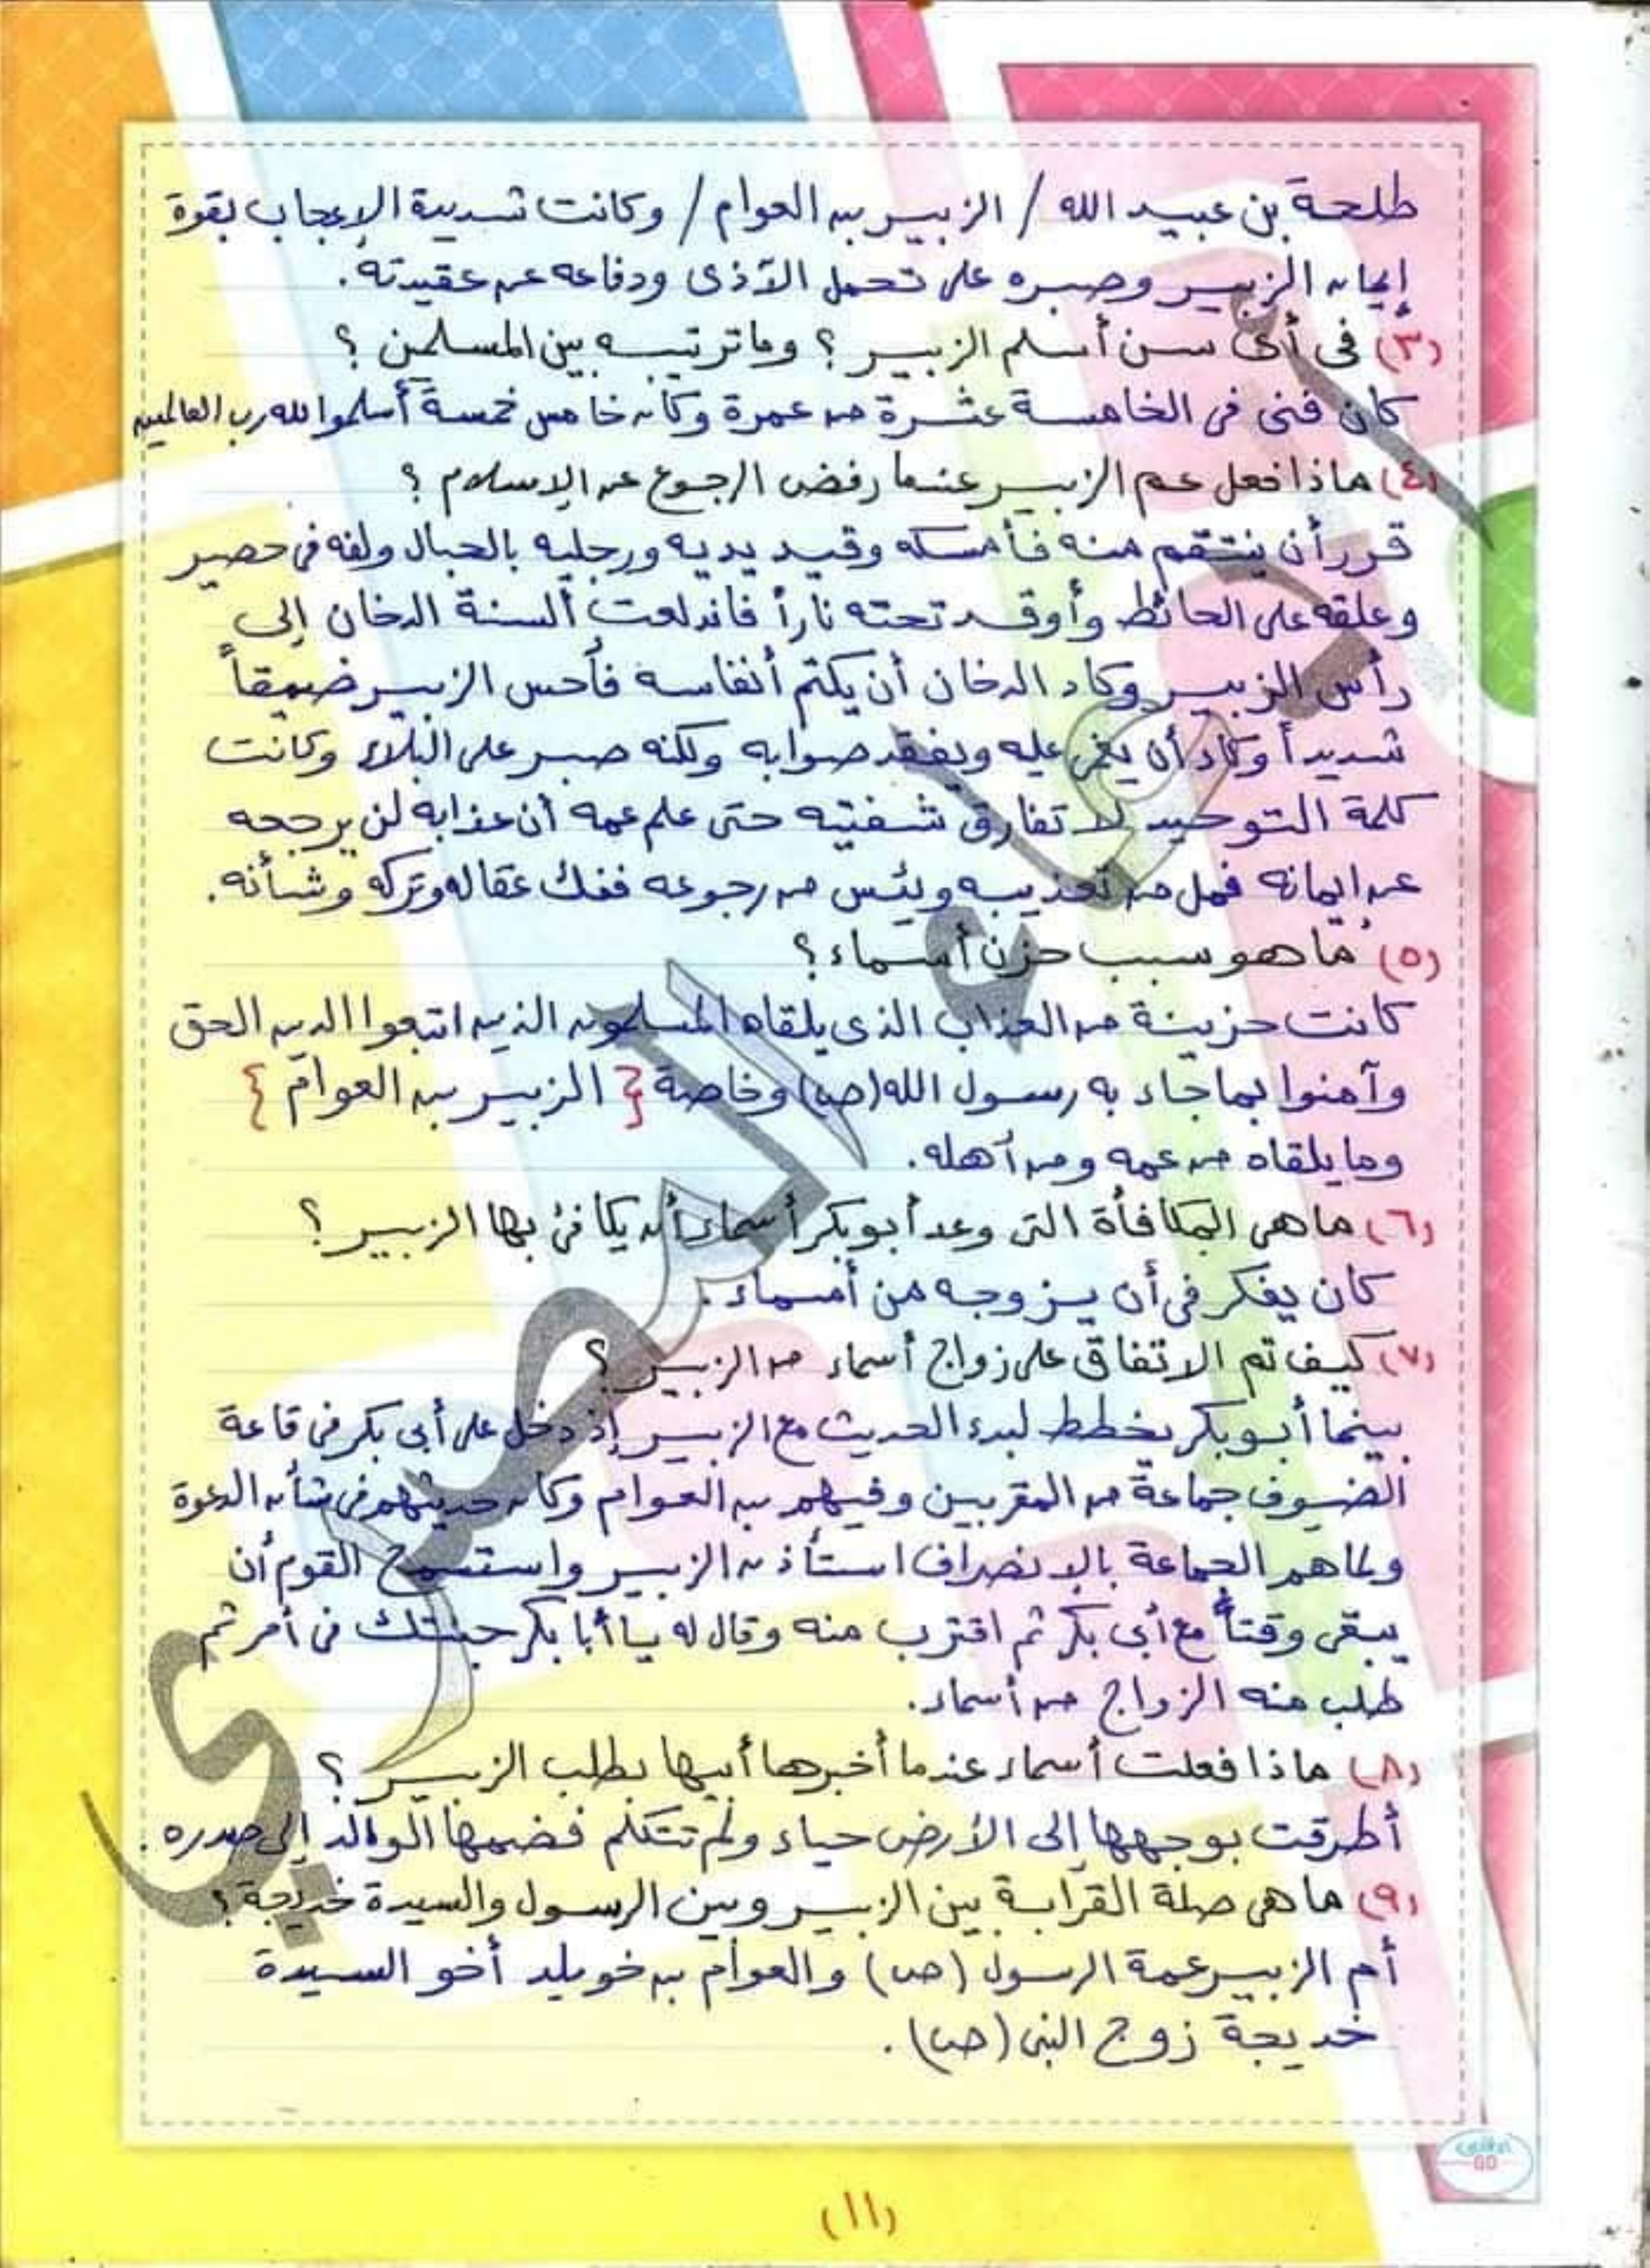 طلحة بن عبيد الله / الزبير بن العوام / وكانت شديدة الإعجاب بقوة
إيمان الزبير وصبره على تحمل الأذى ودفاعه عن عقيدته.
(٣) فى أى سن أسلم الزبير ؟ وما ترتيبه بين المسلمين ؟
كان فتى فى الخامسة عشرة من عمرة وكان خامس خمسة أسلموا لله رب العالمين
(٤) ماذا فعل عم الزبير عندما رفض الرجوع عن الإسلام ؟
قرر أن ينتقم منه فأمسكه وقيد يديه ورجليه بالحبال ولفه فى حصير
وعلقه على الحائط وأوقد تحته ناراً فاندلعت ألسنة الدخان إلى
رأس الزبير وكاد الدخان أن يكتم أنفاسه فأحس الزبير ضيقاً
شديداً وكاد أن يغمى عليه ويفقد صوابه ولكنه صبر على البلاء وكانت
كلمة التوحيد لا تفارق شفتيه حتى علم عمه أن عذابه لن يرجعه
عن إيمانه فمل من تعذيبه ويئس من رجوعه ففك عقاله وتركه وشأنه.
(٥) ما هو سبب حزن أسماء ؟
كانت حزينة من العذاب الذى يلقاه المسلمون الذين اتبعوا الدين الحق
وآمنوا بما جاء به رسول الله (ص) وخاصة { الزبير بن العوام }
وما يلقاه من عمه ومن أهله.
(٦) ما هى المكافأة التى وعد أبو بكر أسماء أن يكافئ بها الزبير ؟
كان يفكر فى أن يزوجه من أسماء.
(٧) كيف تم الاتفاق على زواج أسماء من الزبير ؟
بينما أبو بكر يخطط لبدء الحديث مع الزبير إذ دخل على أبى بكر فى قاعة
الضيوف جماعة من المقربين وفيهم بن العوام وكان حديثهم فى شأن الدعوة
ولما هم الجماعة بالانصراف استأذن الزبير واستسمح القوم أن
يبقى وقتاً مع أبى بكر ثم اقترب منه وقال له يا أبا بكر جئتك فى أمر ثم
طلب منه الزواج من أسماء.
(٨) ماذا فعلت أسماء عندما أخبرها أبيها بطلب الزبير ؟
أطرقت بوجهها إلى الأرض حياء ولم تتكلم فضمها الوالد إلى صدره.
(٩) ما هى صلة القرابة بين الزبير وبين الرسول والسيدة خديجة ؟
أم الزبير عمة الرسول (ص) والعوام بن خويلد أخو السيدة
خديجة زوج النبى (ص).
(١١)